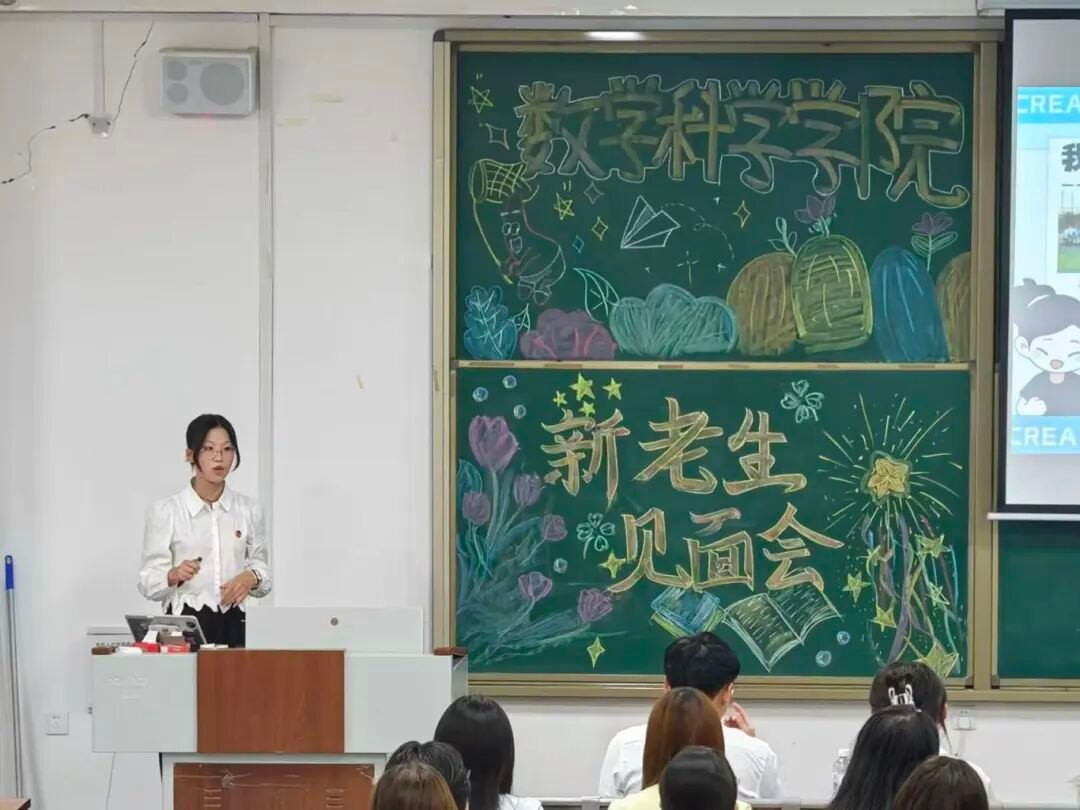 数学科学学院
新老生
见面会
CREA
我
CREA